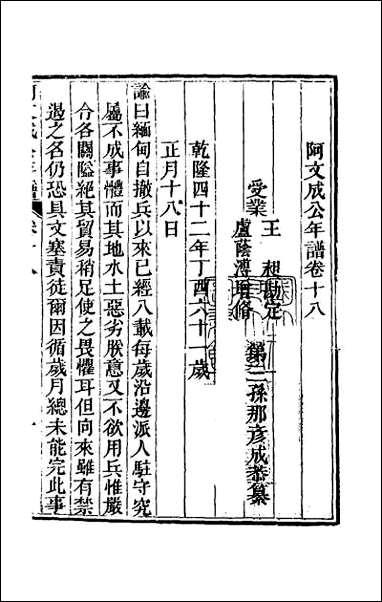 阿文成公年譜卷十八
第三孫那彥成恭纂
受業
王昶勘定
盧蔭溥增修
乾隆四十二年丁酉六十一歲
正月十八日
諭曰緬甸自撤兵以來已經八載每歲沿邊派人駐守究
屬不成事體而其地水土惡劣朕意又不欲用兵惟嚴
令各關隘絕其貿易稍足使之畏懼耳但向來雖有禁
遏之名仍恐具文塞責徒爾因循歲月總未能完此事